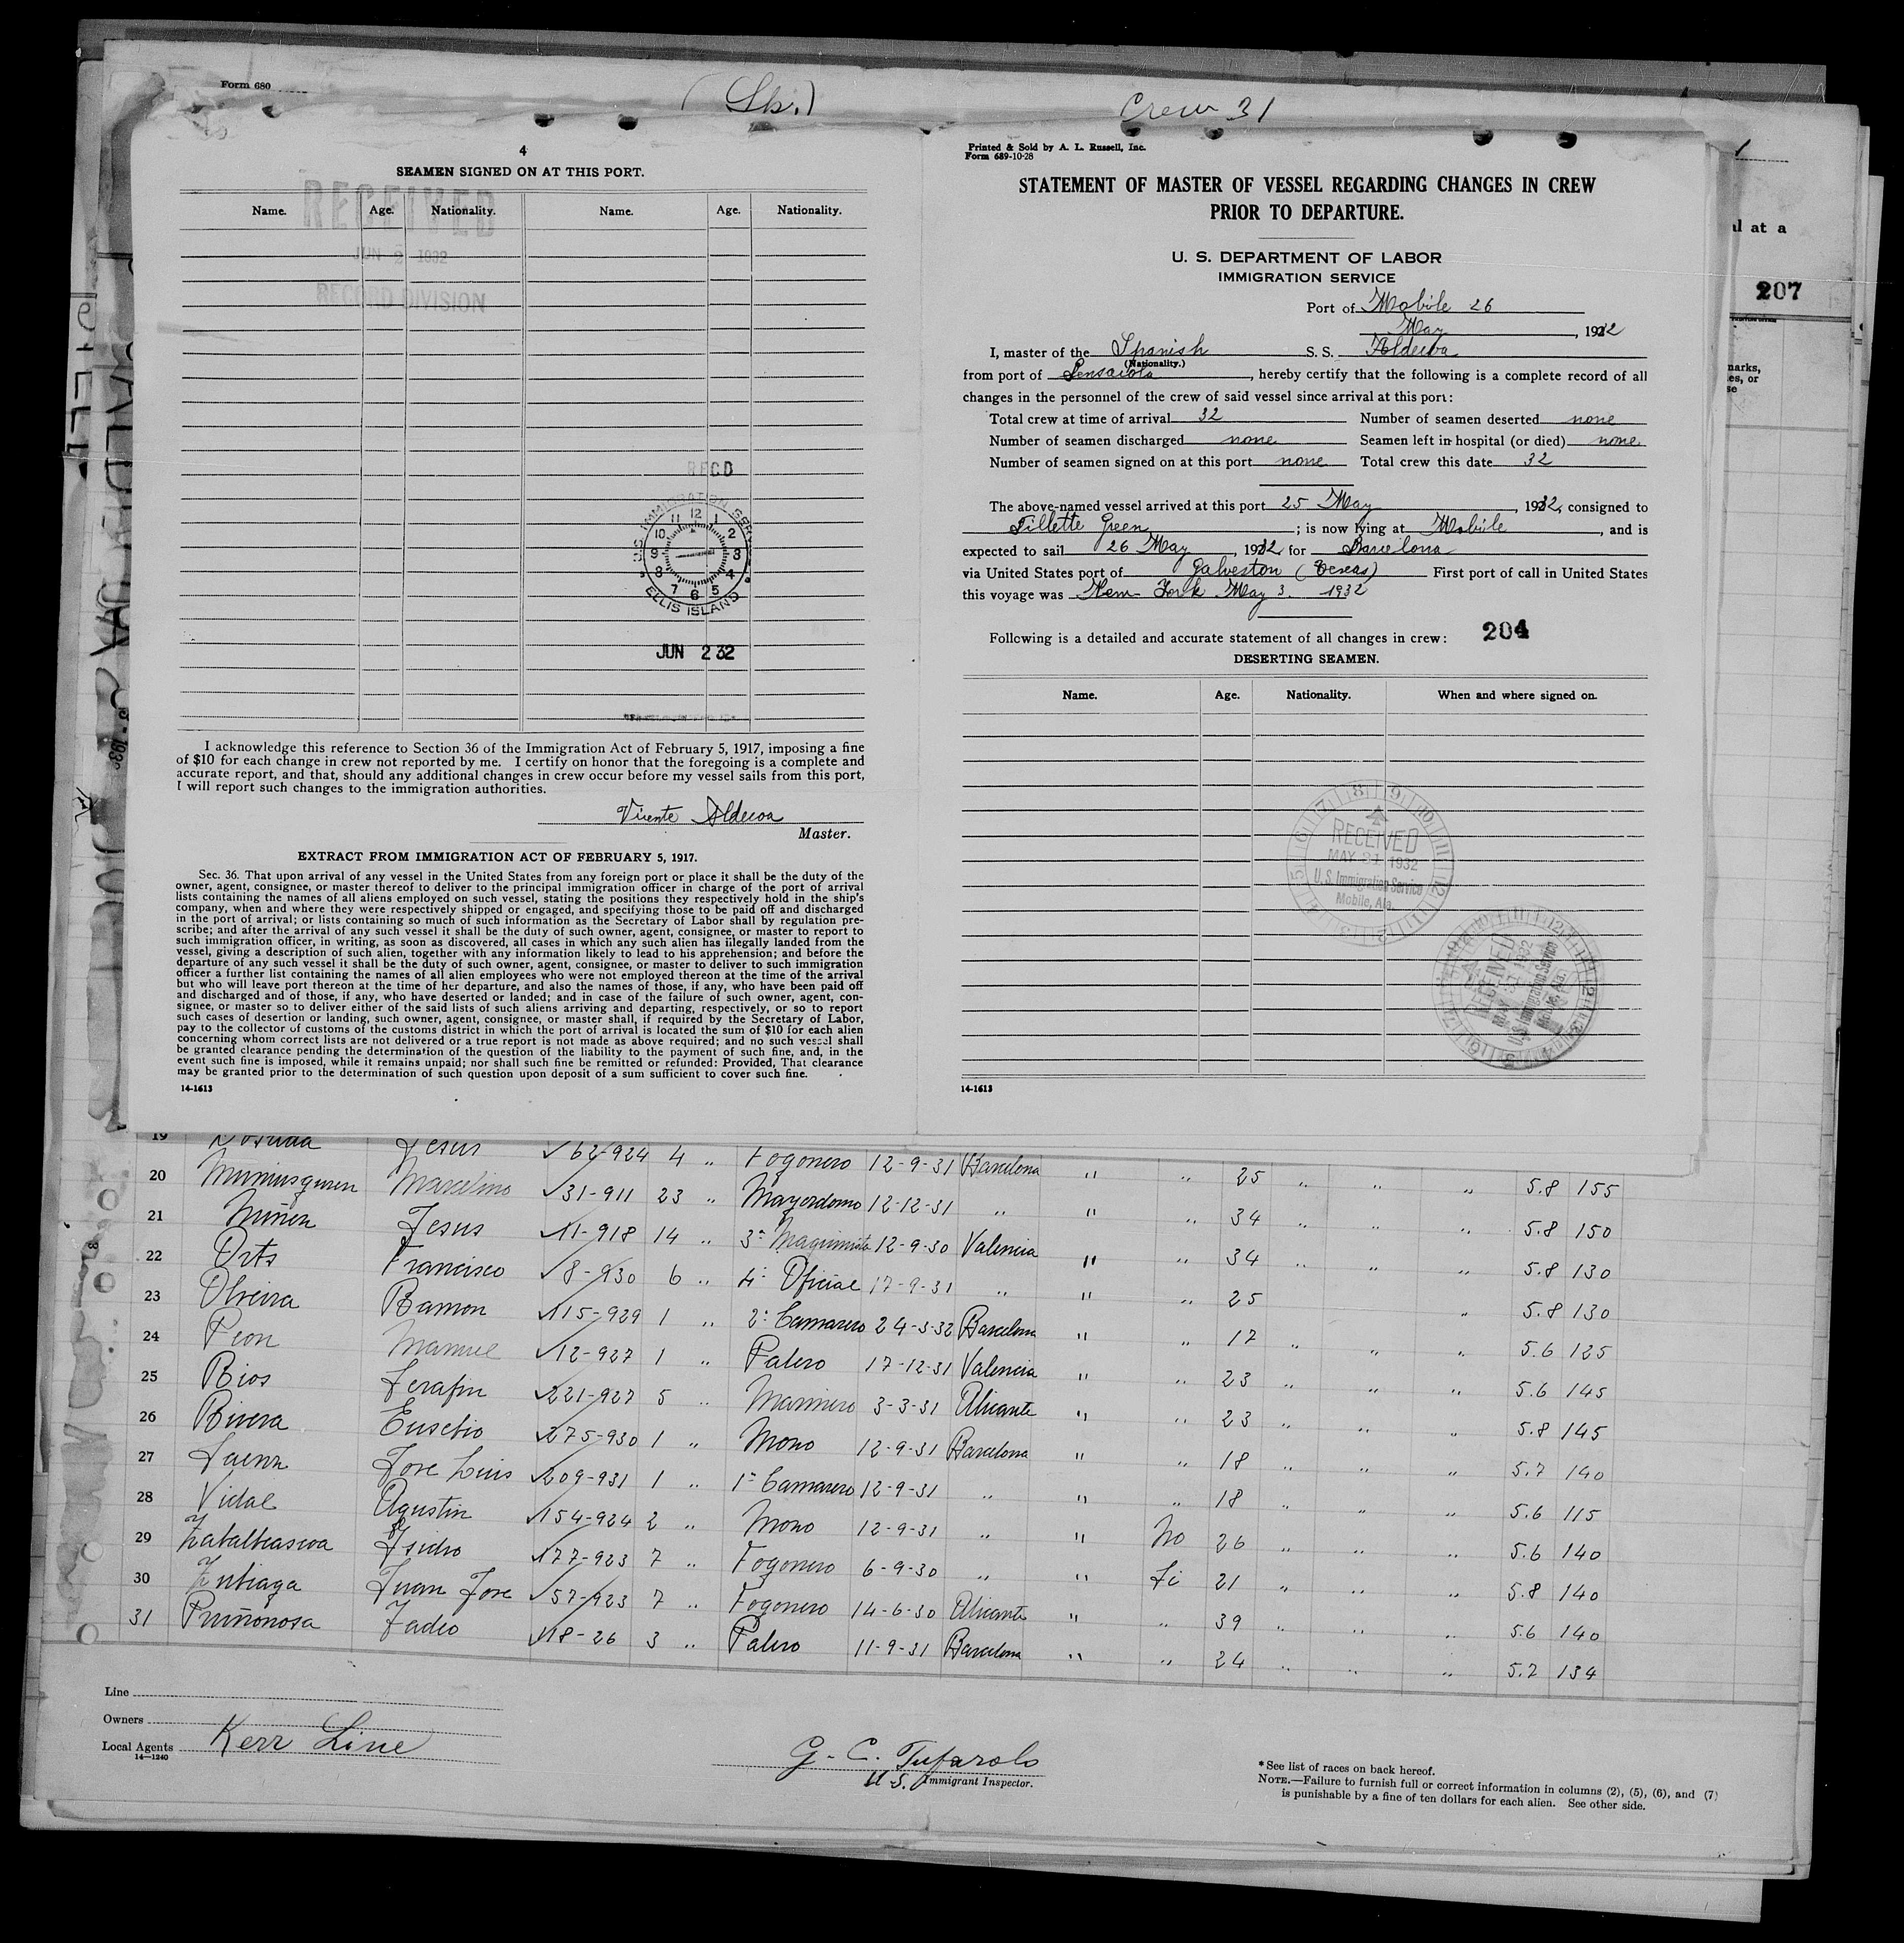 Form 680
(Sp.)
Crew 31
4
SEAMEN SIGNED ON AT THIS PORT.
Name. Age. Nationality. Name. Age. Nationality.
RECEIVED
JUN 2 1932
RECORD DIVISION
REC'D
U.S. IMMIGRATION SERV.
12 1 2 3 4 5 6 7 8 9 10 11
ELLIS ISLAND
JUN 2 32
I acknowledge this reference to Section 36 of the Immigration Act of February 5, 1917, imposing a fine
of $10 for each change in crew not reported by me. I certify on honor that the foregoing is a complete and
accurate report, and that, should any additional changes in crew occur before my vessel sails from this port,
I will report such changes to the immigration authorities.
Vicente Aldecoa
Master.
EXTRACT FROM IMMIGRATION ACT OF FEBRUARY 5, 1917.
Sec. 36. That upon arrival of any vessel in the United States from any foreign port or place it shall be the duty of the
owner, agent, consignee, or master thereof to deliver to the principal immigration officer in charge of the port of arrival
lists containing the names of all aliens employed on such vessel, stating the positions they respectively hold in the ship's
company, when and where they were respectively shipped or engaged, and specifying those to be paid off and discharged
in the port of arrival; or lists containing so much of such information as the Secretary of Labor shall by regulation pre-
scribe; and after the arrival of any such vessel it shall be the duty of such owner, agent, consignee, or master to report to
such immigration officer, in writing, as soon as discovered, all cases in which any such alien has illegally landed from the
vessel, giving a description of such alien, together with any information likely to lead to his apprehension; and before the
departure of any such vessel it shall be the duty of such owner, agent, consignee, or master to deliver to such immigration
officer a further list containing the names of all alien employees who were not employed thereon at the time of the arrival
but who will leave port thereon at the time of her departure, and also the names of those, if any, who have been paid off
and discharged and of those, if any, who have deserted or landed; and in case of the failure of such owner, agent, con-
signee, or master so to deliver either of the said lists of such aliens arriving and departing, respectively, or so to report
such cases of desertion or landing, such owner, agent, consignee, or master shall, if required by the Secretary of Labor,
pay to the collector of customs of the customs district in which the port of arrival is located the sum of $10 for each alien
concerning whom correct lists are not delivered or a true report is not made as above required; and no such vessel shall
be granted clearance pending the determination of the question of the liability to the payment of such fine, and, in the
event such fine is imposed, while it remains unpaid; nor shall such fine be remitted or refunded: Provided, That clearance
may be granted prior to the determination of such question upon deposit of a sum sufficient to cover such fine.
14-1613
Printed & Sold by A. L. Russell, Inc.
Form 689-10-28
STATEMENT OF MASTER OF VESSEL REGARDING CHANGES IN CREW
PRIOR TO DEPARTURE.
U. S. DEPARTMENT OF LABOR
IMMIGRATION SERVICE
Port of Mobile 26
May, 1932
I, master of the Spanish S. S. Aldecoa
(Nationality.)
from port of Pensacola, hereby certify that the following is a complete record of all
changes in the personnel of the crew of said vessel since arrival at this port:
Total crew at time of arrival 32 Number of seamen deserted none
Number of seamen discharged none Seamen left in hospital (or died) none
Number of seamen signed on at this port none Total crew this date 32
The above-named vessel arrived at this port 25 May, 1932, consigned to
Fillette Green; is now lying at Mobile, and is
expected to sail 26 May, 1932 for Barcelona
via United States port of Galveston (Texas) First port of call in United States
this voyage was New-York May 3. 1932
Following is a detailed and accurate statement of all changes in crew: 204
DESERTING SEAMEN.
Name. Age. Nationality. When and where signed on.
RECEIVED
MAY 31 1932
U.S. Immigration Service
Mobile, Ala.
RECEIVED
MAY 31 1932
U.S. Immigration Service
Mobile, Ala.
14-1613
al at a
207
marks,
es, or
se
19 Jesus 62-924 4 " Fogonero 12-9-31 Barcelona " " 25 " " " 5.8 155
20 Marcelino 31-911 23 " Mayordomo 12-12-31 " " " 34 " " " 5.8 150
21 Jesus 11-918 14 " 3º Maquinista 12-9-30 Valencia " " 34 " " " 5.8 130
22 Orts Francisco 8-930 6 " 4º Oficial 17-9-31 " " " 25 " 5.8 130
23 Olveira Ramon 115-929 1 " 2º Camarero 24-3-32 Barcelona " " 17 " " " 5.6 125
24 Peon Manuel 12-927 1 " Palero 17-12-31 Valencia " " 23 " " " 5.6 145
25 Rios Serafin 221-927 5 " Marinero 3-3-31 Alicante " " 23 " " 5.8 145
26 Rivera Eusebio 275-930 1 " Mozo 12-9-31 Barcelona " " 18 " " " 5.7 140
27 Saenz Jose Luis 209-931 1 " 1º Camarero 12-9-31 " " " 18 " " " 5.6 115
28 Vidal Agustin 154-924 2 " Mozo 12-9-31 " " No 26 " " " 5.6 140
29 Zabalbeascoa Isidro 177-923 7 " Fogonero 6-9-30 " " Si 21 " " " 5.8 140
30 Zubiaga Juan Jose 57-923 7 " Fogonero 14-6-30 Alicante " " 39 " " " 5.6 140
31 Puiñonosa Tadeo 18-26 3 " Palero 11-9-31 Barcelona " " 24 " " " 5.2 134
Line
Owners
Local Agents Kerr Line
14-1240
G. C. Tufarolo
U.S. Immigrant Inspector.
* See list of races on back hereof.
NOTE.—Failure to furnish full or correct information in columns (2), (5), (6), and (7)
is punishable by a fine of ten dollars for each alien. See other side.